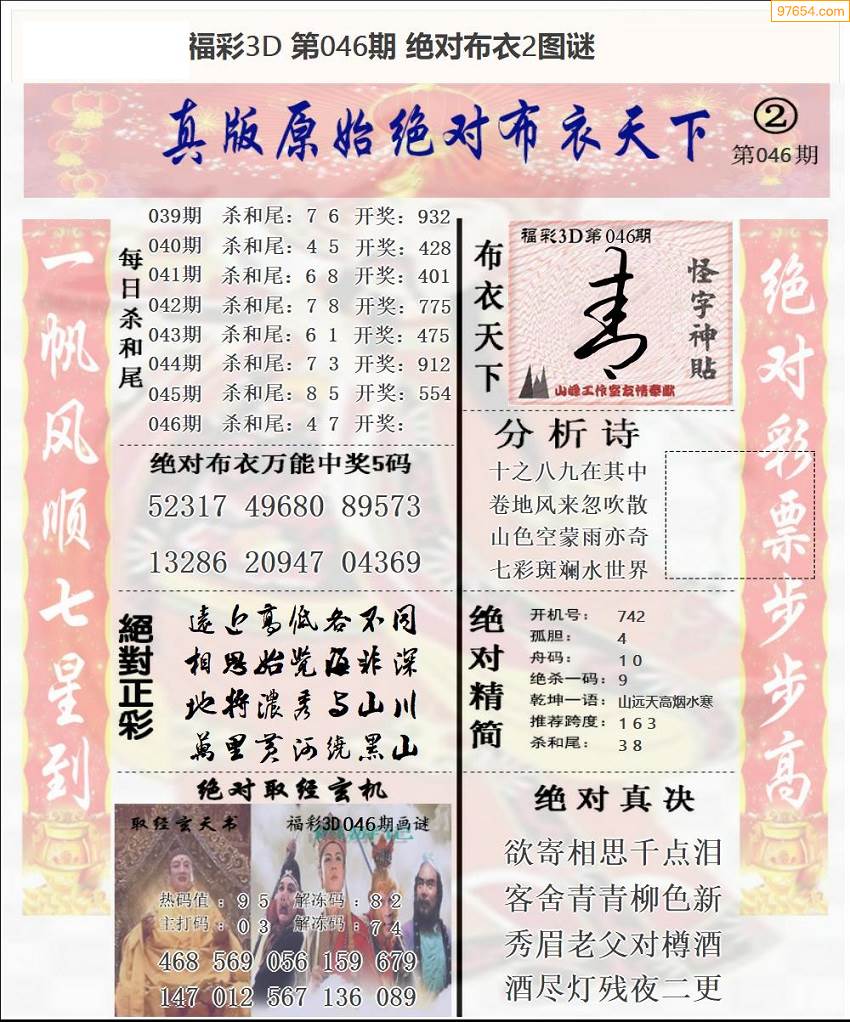 97654.com
福彩3D 第046期 绝对布衣2图谜
真版原始绝对布衣天下
②
第046期
一帆风顺七星到
每日杀和尾
039期 杀和尾：7 6 开奖：932
040期 杀和尾：4 5 开奖：428
041期 杀和尾：6 8 开奖：401
042期 杀和尾：7 8 开奖：775
043期 杀和尾：6 1 开奖：475
044期 杀和尾：7 3 开奖：912
045期 杀和尾：8 5 开奖：554
046期 杀和尾：4 7 开奖：
绝对布衣万能中奖5码
52317 49680 89573
13286 20947 04369
絕對正彩
遠近高低各不同
相思始觉海非深
地将濃秀与山川
萬里黄河绕黑山
绝对取经玄机
取经玄天书
福彩3D046期画谜
热码值：9 5 解冻码：8 2
主打码：0 3 解冻码：7 4
468 569 056 159 679
147 012 567 136 089
布衣天下
福彩3D第046期
怪字神貼
山峰工作室友情奉献
分析诗
十之八九在其中
卷地风来忽吹散
山色空蒙雨亦奇
七彩斑斓水世界
绝对精简
开机号： 742
孤胆： 4
舟码： 1 0
绝杀一码：9
乾坤一语：山远天高烟水寒
推荐跨度：1 6 3
杀和尾： 3 8
绝对真决
欲寄相思千点泪
客舍青青柳色新
秀眉老父对樽酒
酒尽灯残夜二更
绝对彩票步步高